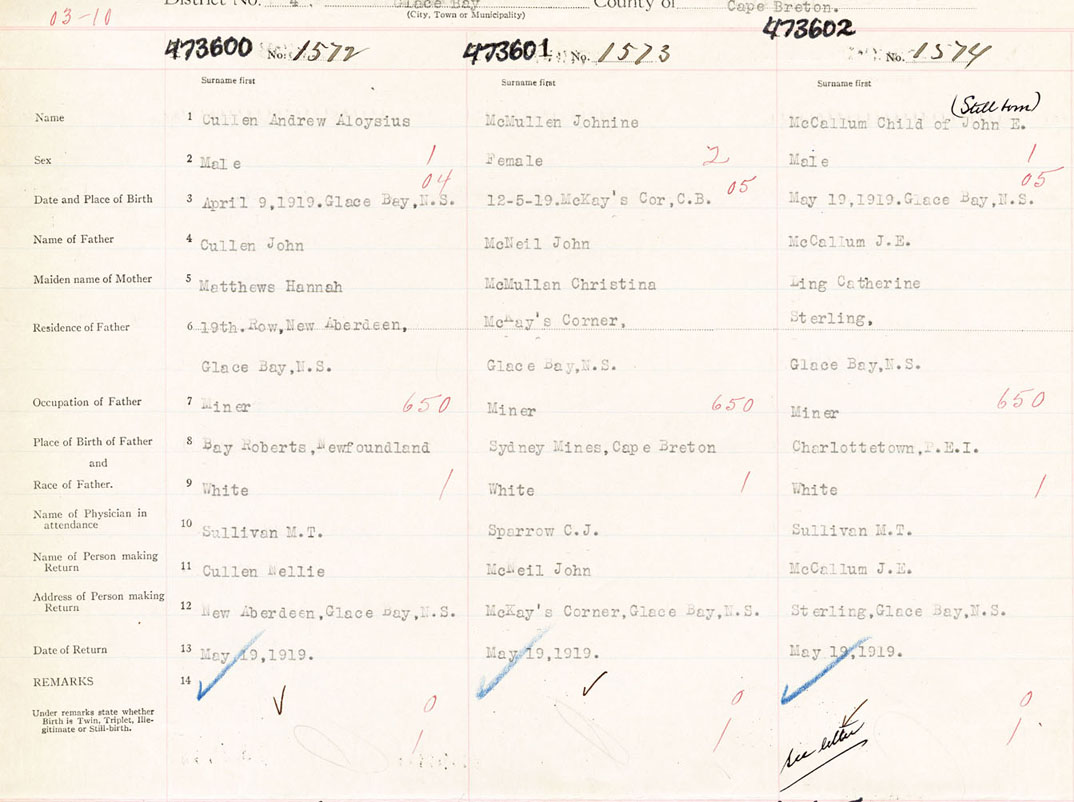 District No. 4. Glace Bay County of Cape Breton.
(City, Town or Municipality)
03-10
473600 No. 1572 473601 No. 1573 473602 No. 1574
Surname first Surname first Surname first
(Still born)
Name 1 Cullen Andrew Aloysius McMullen Johnine McCallum Child of John E.
Sex 2 Male 1 Female 2 Male 1
04 05 05
Date and Place of Birth 3 April 9,1919.Glace Bay,N.S. 12-5-19.McKay's Cor,C.B. May 19,1919.Glace Bay,N.S.
Name of Father 4 Cullen John McNeil John McCallum J.E.
Maiden name of Mother 5 Matthews Hannah McMullan Christina Ling Catherine
Residence of Father 6 19th.Row,New Aberdeen, McKay's Corner, Sterling,
Glace Bay,N.S. Glace Bay,N.S. Glace Bay,N.S.
Occupation of Father 7 Miner 650 Miner 650 Miner 650
Place of Birth of Father 8 Bay Roberts,Newfoundland Sydney Mines,Cape Breton Charlottetown,P.E.I.
and
Race of Father. 9 White 1 White 1 White 1
Name of Physician in
attendance 10 Sullivan M.T. Sparrow C.J. Sullivan M.T.
Name of Person making
Return 11 Cullen Nellie McNeil John McCallum J.E.
Address of Person making
Return 12 New Aberdeen,Glace Bay,N.S. McKay's Corner,Glace Bay,N.S. Sterling,Glace Bay,N.S.
Date of Return 13 May 19,1919. May 19,1919. May 19,1919.
REMARKS 14
0 0 0
Under remarks state whether
Birth is Twin, Triplet, Ille-
gitimate or Still-birth.
1 1 1
see letter